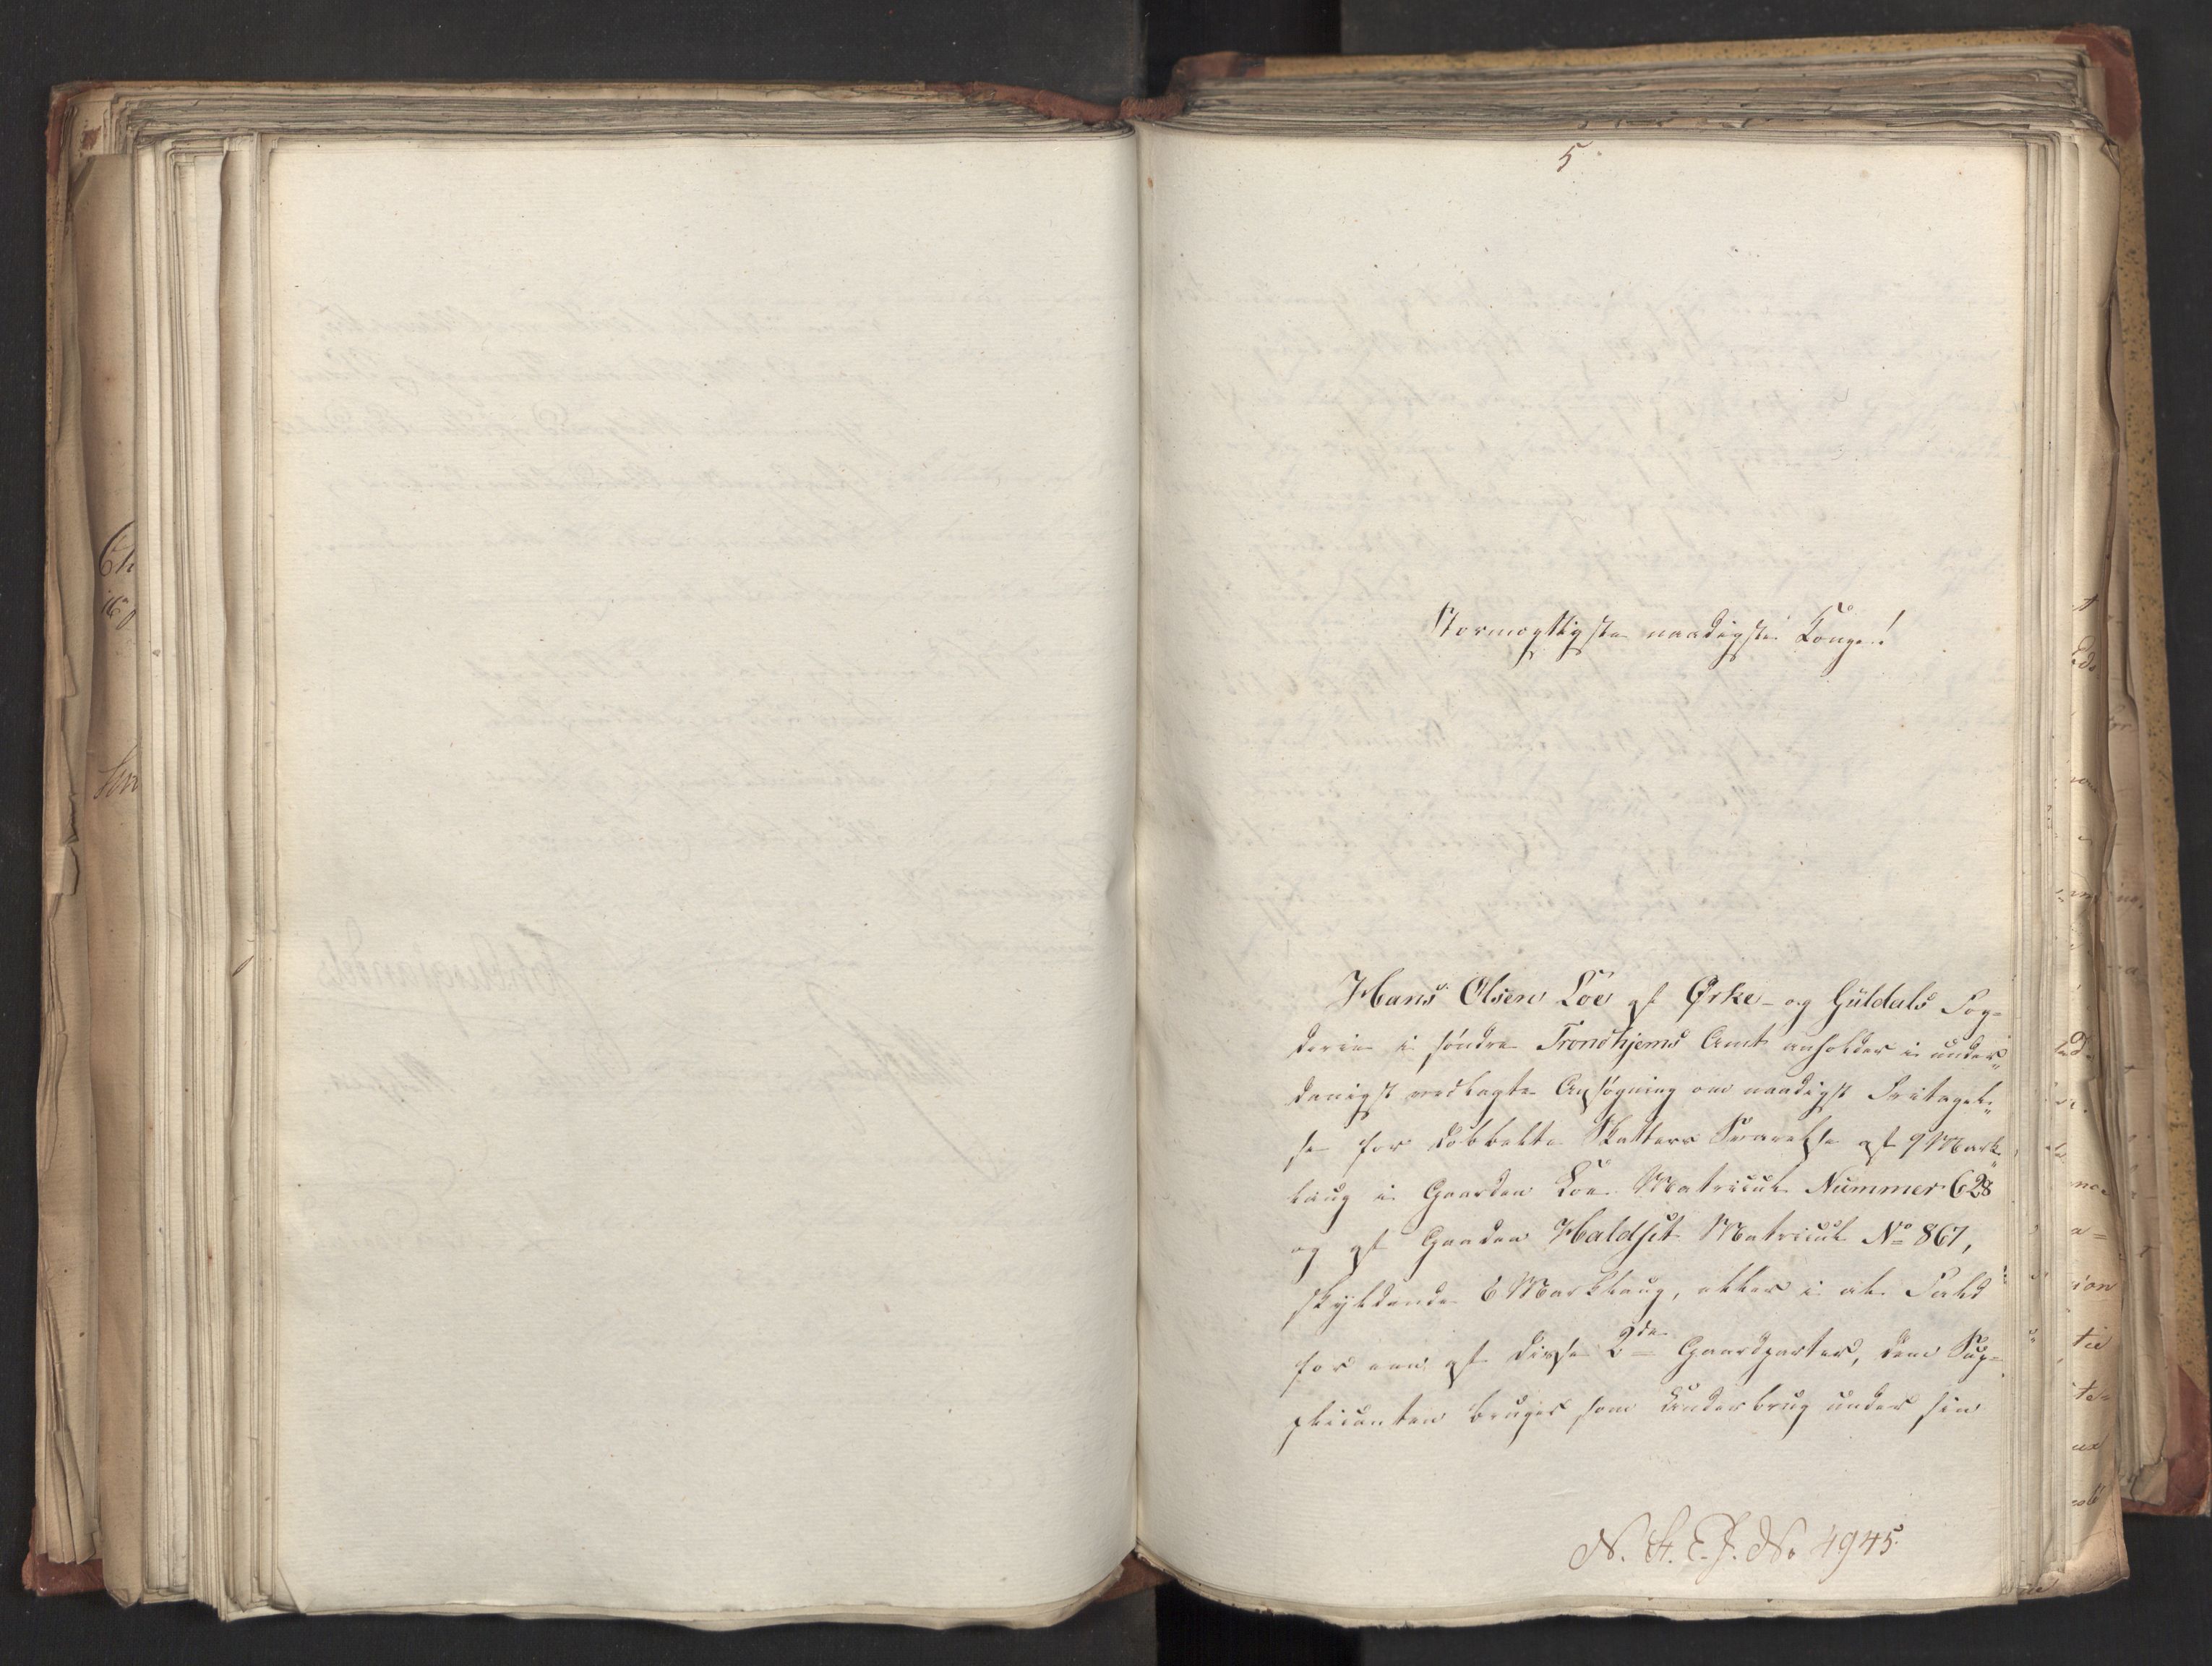 5.
Stormægtigste naadigste Konge!
Hans Olsen Loe af Ørke- og Güldals Fog=
derie i søndre Trondhjems Amt anholder i under„
danigst vedlagte Ansøgning om naadigst Fritagel„
se for dobbelte Skatters Svarelse af 9 Mark„
laug i Gaarden Loe Matricul Nummer 628
og af Gaarden Haldset Matricul No 867,
skyldende 6 Marklaug, eller i al Fald
for een af disse 2de Gaardparter, dem Sup=
plicanten bruger som Underbrug under sin
N. St. E. J. No 4945.